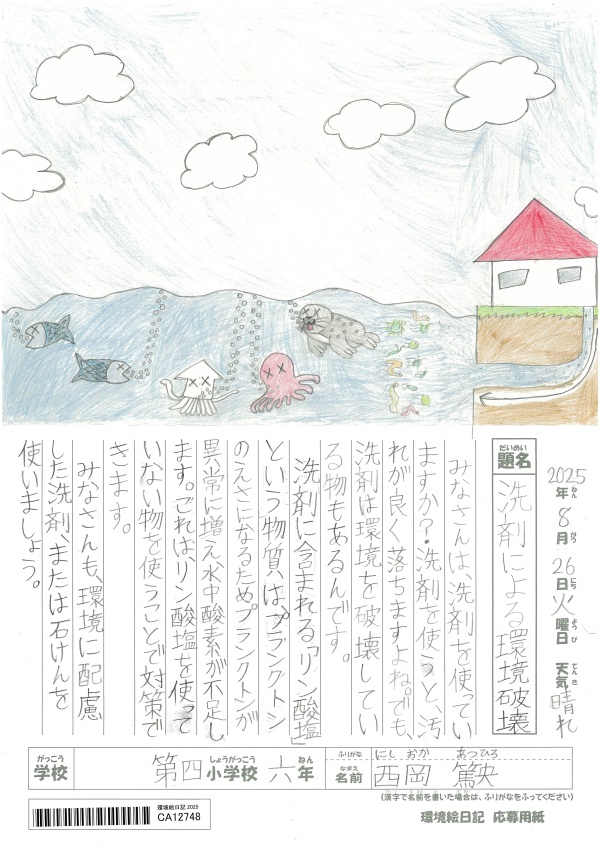 2025年8月26日火曜日 天気晴れ
ねん がつ にち ようび てんき
だいめい
題名
洗剤による環境破壊
みなさんは、洗剤を使ってい
ますか？洗剤を使うと、汚
れが良く落ちますよね。でも、
洗剤は環境を破壊してい
る物もあるんです。
洗剤に含まれる「リン酸塩」
という物質は、プランクトン
のえさになるためプランクトンが
異常に増え水中酸素が不足し
ます。これは、リン酸塩を使って
いない物を使うことで対策で
きます。
みなさんも、環境に配慮
した洗剤、または石けんを
使いましょう。
がっこう
学校
しょうがっこう ねん
第四小学校 六年
ふりがな
にし おか あつひろ
なまえ
名前
西岡 篤央
(漢字で名前を書いた場合は、ふりがなをふってください)
環境絵日記 2025
CA12748
環境絵日記 応募用紙